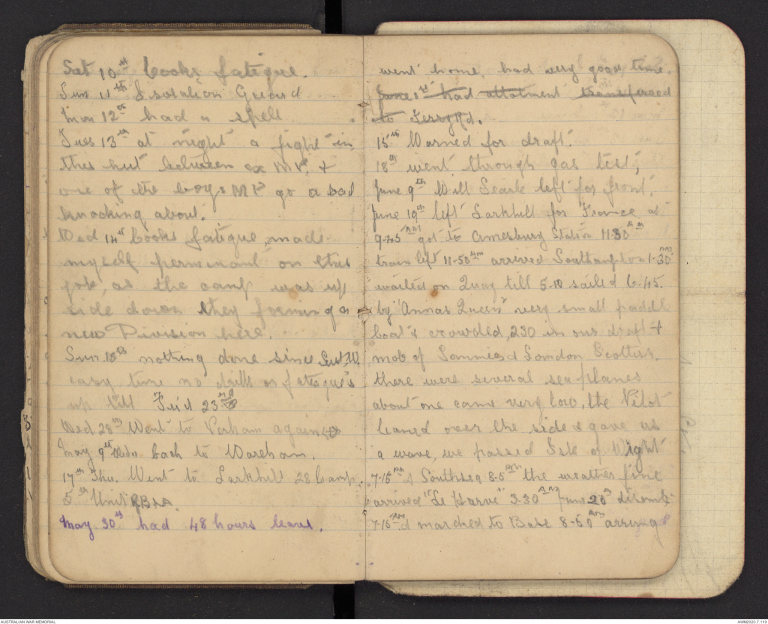 Sat 10th Cooks fatigue.
Sun 11th Isolation Guard
Mon 12th had a spell
Tues 13th at night a fight in
this hut between ex M.P. &
one of the boys M P go a bad
knocking about.
Wed 14th Cooks fatigue, made
myself perminant on this
job, as the camp was up
side down they forming a
new Division here.
Sun 18th nothing done since
easy time no drills or fatigue's
up till Fri'd 23rd
Wed 28th Went to Parham again
May 9th Wed. back to Wareham.
17th Thu. Went to Larkhill 28 Camp.
5th Unit RBAA.
May 30th had 48 hours leave.
went home, had very good time.
June 1st had allotment transfered
to Ferry Rd.
15th Warned for draft.
18th went through gas test,
June 9th Will Searle left for front.
June 19th left Larkhill for France at
9-45 pm got to Amesbury Station 11-30 pm
train left 11-50 pm arrived Southampton 1-30
waited on Quay till 5-10 sailed 6.45.
by "Annas Queen" very small paddle
boat & crowded, 250 in our draft &
mob of Sammies & London Scottish.
there were several sea planes
about one came very low, the Pilot
leaned over the side & gave us
a wave, we passed Isle of Wight
7-15 pm & Southsea 8-5 pm the weather fine
arrived "Le Harve" 3-30 am June 20th disemb-
7-15 am & marched to Base 8-50 am arriving
AUSTRALIAN WAR MEMORIAL
AWM2020.7.119